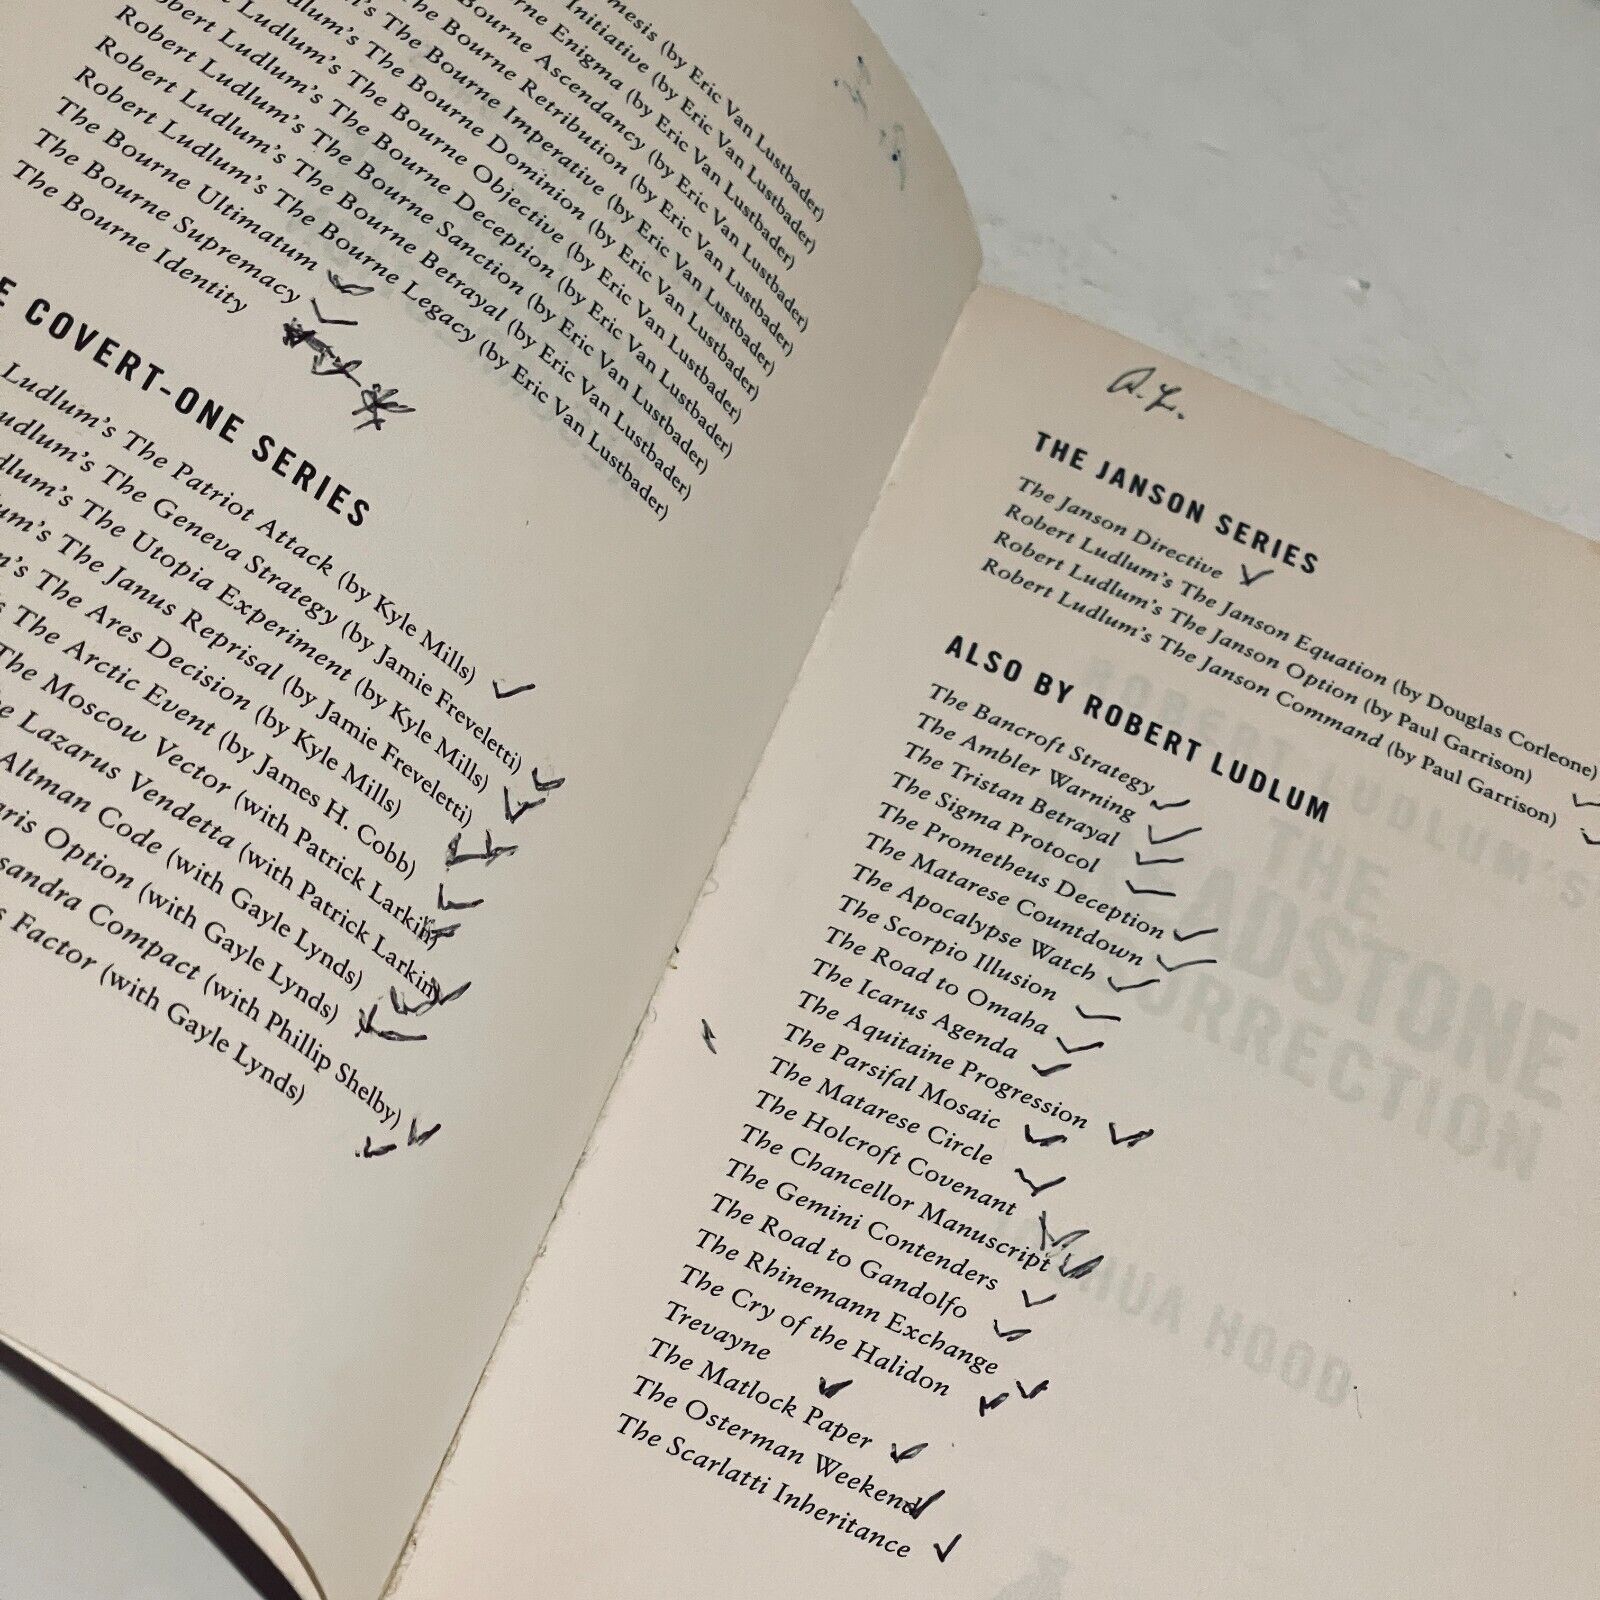 nesis (by Eric Van Lustbader)
Initiative (by Eric Van Lustbader)
ne Enigma (by Eric Van Lustbader)
Bourne Ascendancy (by Eric Van Lustbader)
The Bourne Retribution (by Eric Van Lustbader)
The Bourne Imperative (by Eric Van Lustbader)
's The Bourne Dominion (by Eric Van Lustbader)
Ludlum's The Bourne Objective (by Eric Van Lustbader)
Robert Ludlum's The Bourne Deception (by Eric Van Lustbader)
Robert Ludlum's The Bourne Sanction (by Eric Van Lustbader)
Robert Ludlum's The Bourne Betrayal (by Eric Van Lustbader)
Robert Ludlum's The Bourne Legacy (by Eric Van Lustbader)
The Bourne Ultimatum
The Bourne Supremacy
The Bourne Identity
E COVERT-ONE SERIES
Ludlum's The Patriot Attack (by Kyle Mills)
udlum's The Geneva Strategy (by Jamie Freveletti)
dlum's The Utopia Experiment (by Kyle Mills)
um's The Janus Reprisal (by Jamie Freveletti)
m's The Ares Decision (by Kyle Mills)
s The Arctic Event (by James H. Cobb)
The Moscow Vector (with Patrick Larkin)
e Lazarus Vendetta (with Patrick Larkin)
Altman Code (with Gayle Lynds)
aris Option (with Gayle Lynds)
sandra Compact (with Phillip Shelby)
s Factor (with Gayle Lynds)
THE JANSON SERIES
The Janson Directive
Robert Ludlum's The Janson Equation (by Douglas Corleone)
Robert Ludlum's The Janson Option (by Paul Garrison)
Robert Ludlum's The Janson Command (by Paul Garrison)
ALSO BY ROBERT LUDLUM
The Bancroft Strategy
The Ambler Warning
The Tristan Betrayal
The Sigma Protocol
The Prometheus Deception
The Matarese Countdown
The Apocalypse Watch
The Scorpio Illusion
The Road to Omaha
The Icarus Agenda
The Aquitaine Progression
The Parsifal Mosaic
The Matarese Circle
The Holcroft Covenant
The Chancellor Manuscript
The Gemini Contenders
The Road to Gandolfo
The Rhinemann Exchange
The Cry of the Halidon
Trevayne
The Matlock Paper
The Osterman Weekend
The Scarlatti Inheritance